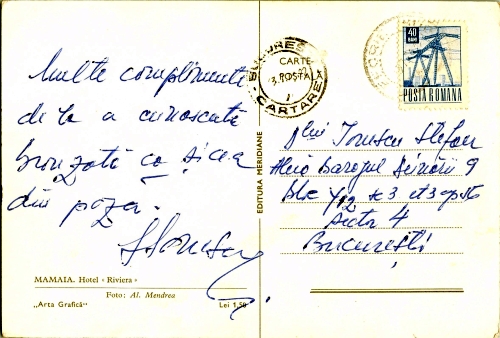 Multe complimente
de la o cunoscută
bronzată ca și cea
din poză.
S Ionescu
MAMAIA. Hotel «Riviera»
Foto: Al. Mendrea
„Arta Grafică“
Lei 1,50
EDITURA MERIDIANE
BUCUREȘTI
CARTE
POȘTALĂ
CARTARE
40
BANI
POSTA ROMANA
Dlui Ionescu Stefan
9
Blc Y12 sc 3 et 3 ap 56
Sector 4
București